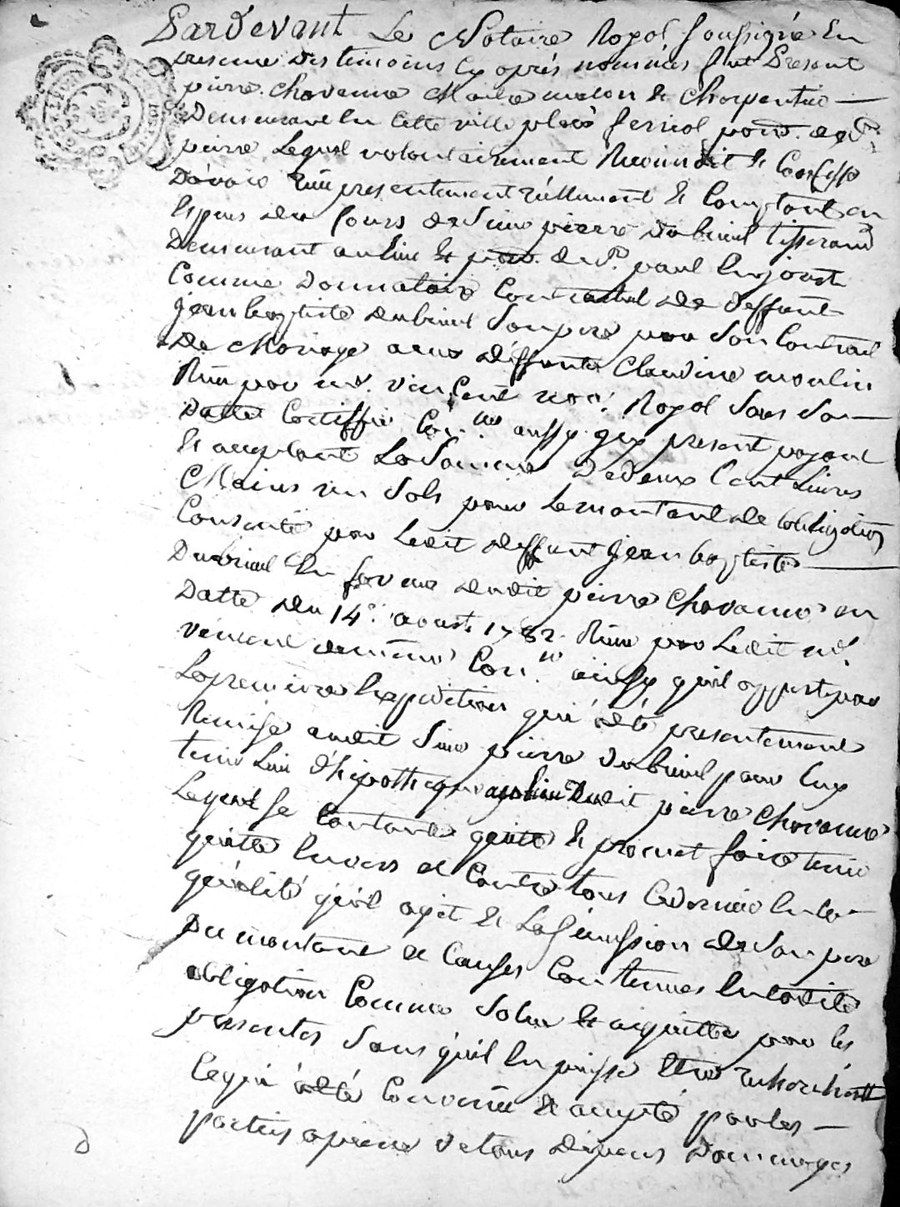 Pardevant Le Notaire Royal soussigné En
presence des temoins cy aprés nommés fut Present
pierre Chavanne Maitre masson & Charpentier
Demeurant En cette ville place ferriol
pierre Lequel volontairement Reconnoit & Confesse
D'avoir Reçu presentement réellement & Comptant en
Especes du Cours de Sieur pierre dubreuil tisserand
Demeurant au lieu & parr. de St. paul En jarest
Comme Donnataire Contractuel de deffunt
jean baptiste dubreuil Son pere par Son Contrat
De Mariage avec deffunte Claudine moulin
Reçu par me. vincent not. Royal Sous Sa
Datte Certiffié aussy icy present payant
& acceptant La Somme De deux Cent Livres
Moins un Sols pour Le montant de L'obligation
Consentie par Ledit deffunt jean baptiste
Dubreuil En faveur dudit pierre Chavanne en
Datte du 14e. aoust 1782. Reçue par Ledit me.
vincent ainsy qu'il appert par
La premiere Expedition qui a été presentement
Remise audit Sieur pierre dubreuil pour Luy
tenir Lieu d'hipotheque dudit pierre Chavanne
Lequel Se Contente quitte & promet faire tenir
quitte Envers & Contre tous Ce dernier En la
qualité qu'il agit & La Succession de Son pere
Du montant & Causes Contenues En ladite
obligation Comme Solue & aquittée par les
presentes Sans qu'il En puisse Etre recherché
Ce qui a été Convenu & accepté par les
parties a peine de tous depens Dommages